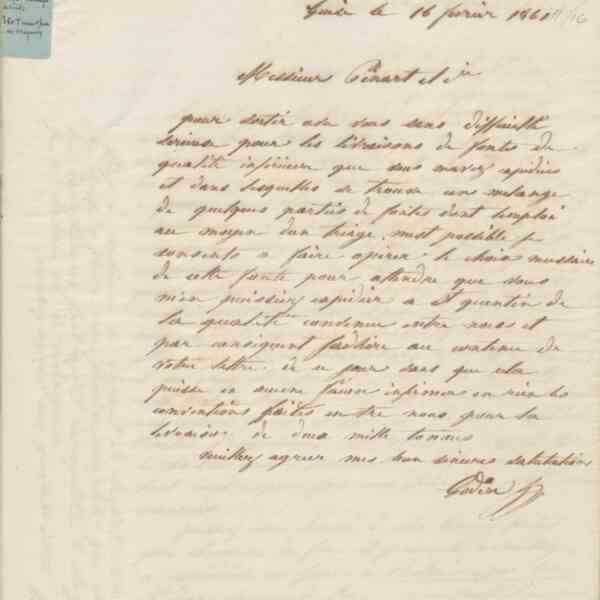 Guise le 16 février 1861
Messieurs Pinart et Cie
pour sortir avec vous sans difficulté
sérieuse pour les livraisons de fontes de
qualité inférieure que vous mavez expédiées
et dans lesquelles se trouve un mélange
de quelques parties de fontes dont lemploi
au moyen dun triage mest possible je
consents a faire opérer le choix nécessaire
de cette fonte pour attendre que vous
men puissiez expédier a St quentin de
la qualité convenue entre nous et
par conséquent jadhère au contenu de
votre lettre de ce jour sans que cela
puisse en aucune façon infirmer en rien les
conventions faites entre nous pour la
livraison de deux mille tonnes
veuillez agréer mes bien sincères salutations
Godin